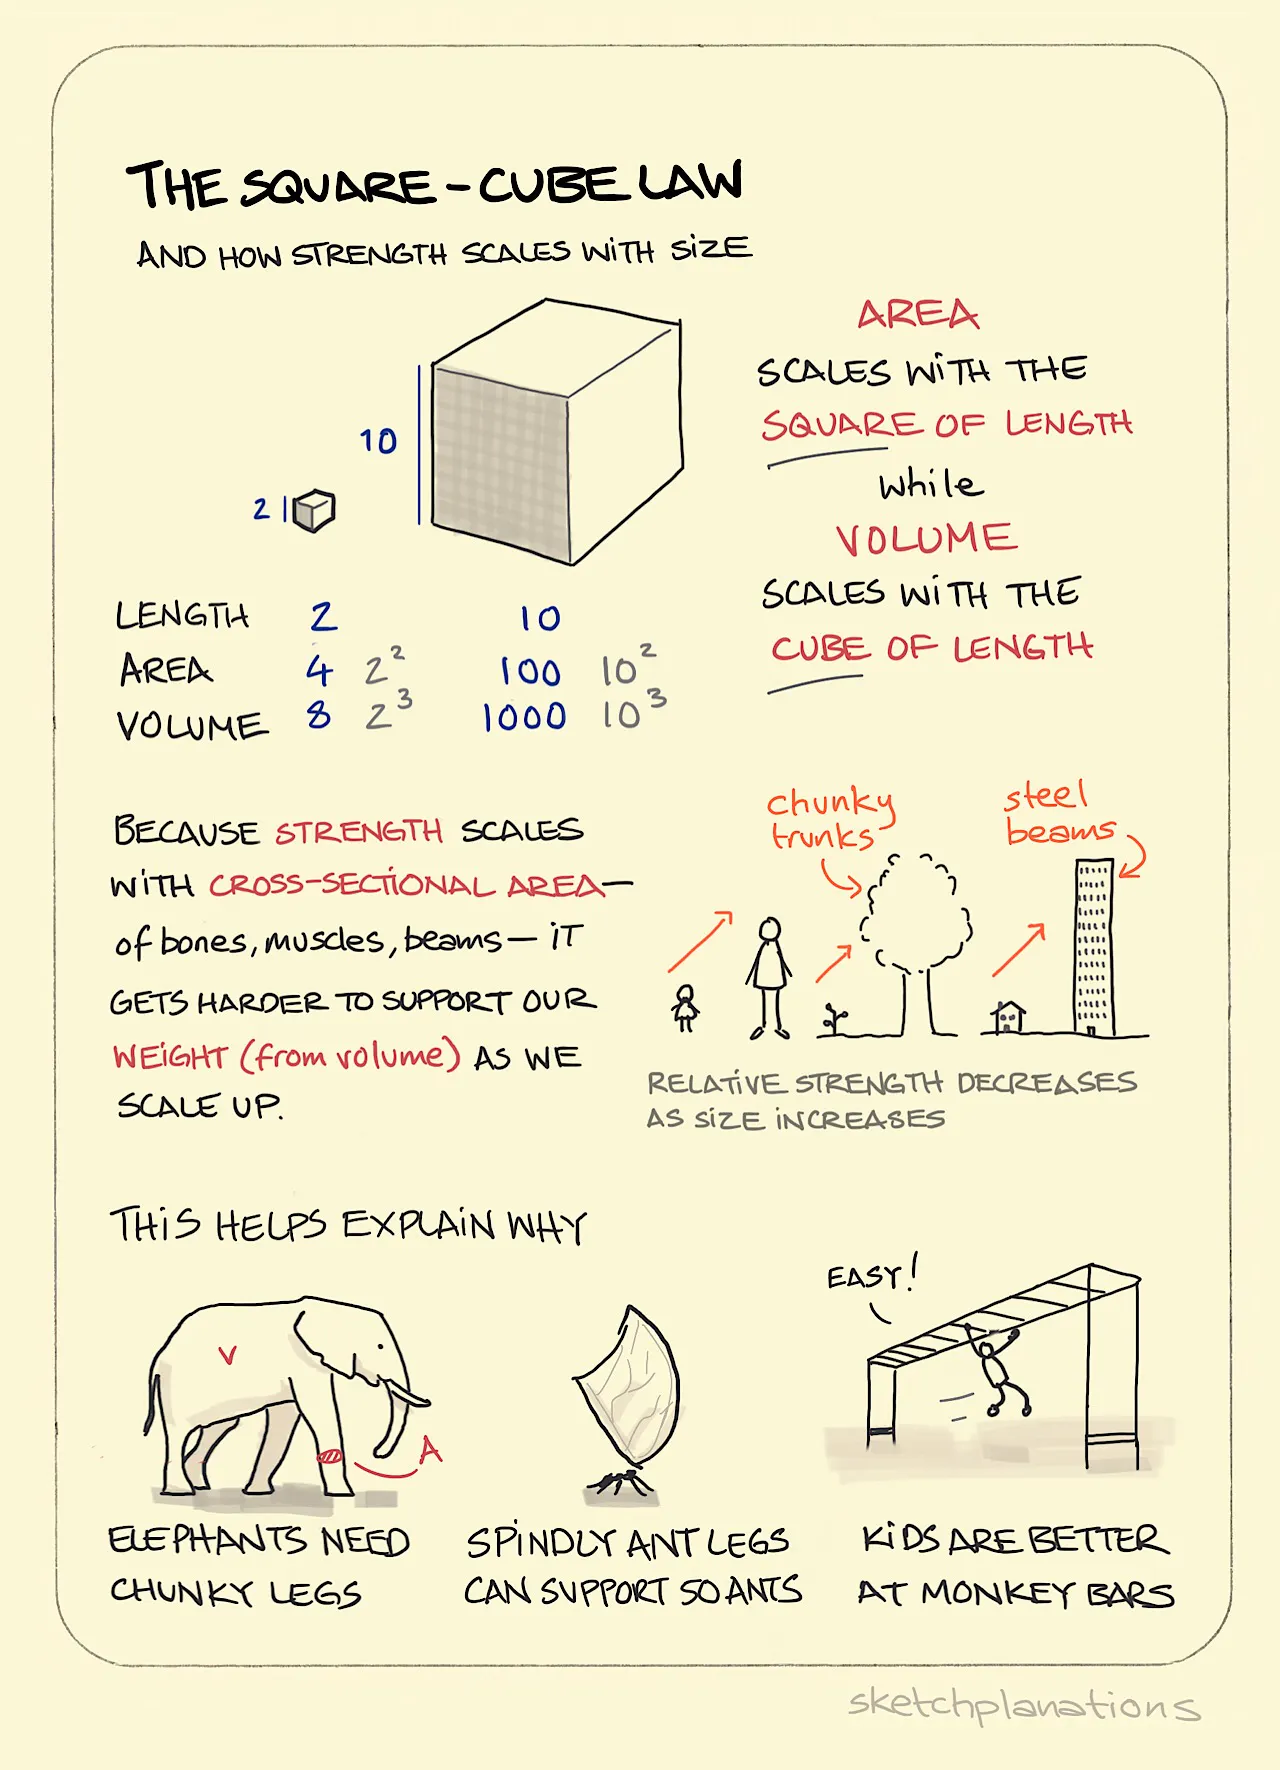 THE SQUARE-CUBE LAW
AND HOW STRENGTH SCALES WITH SIZE
10
2
AREA
SCALES WITH THE
SQUARE OF LENGTH
while
VOLUME
SCALES WITH THE
CUBE OF LENGTH
LENGTH 2 10
AREA 4 2² 100 10²
VOLUME 8 2³ 1000 10³
BECAUSE STRENGTH SCALES
WITH CROSS-SECTIONAL AREA—
of bones, muscles, beams— IT
GETS HARDER TO SUPPORT OUR
WEIGHT (from volume) AS WE
SCALE UP.
chunky
trunks
steel
beams
RELATIVE STRENGTH DECREASES
AS SIZE INCREASES
THIS HELPS EXPLAIN WHY
V
A
ELEPHANTS NEED
CHUNKY LEGS
SPINDLY ANT LEGS
CAN SUPPORT 50 ANTS
EASY!
KIDS ARE BETTER
AT MONKEY BARS
sketchplanations